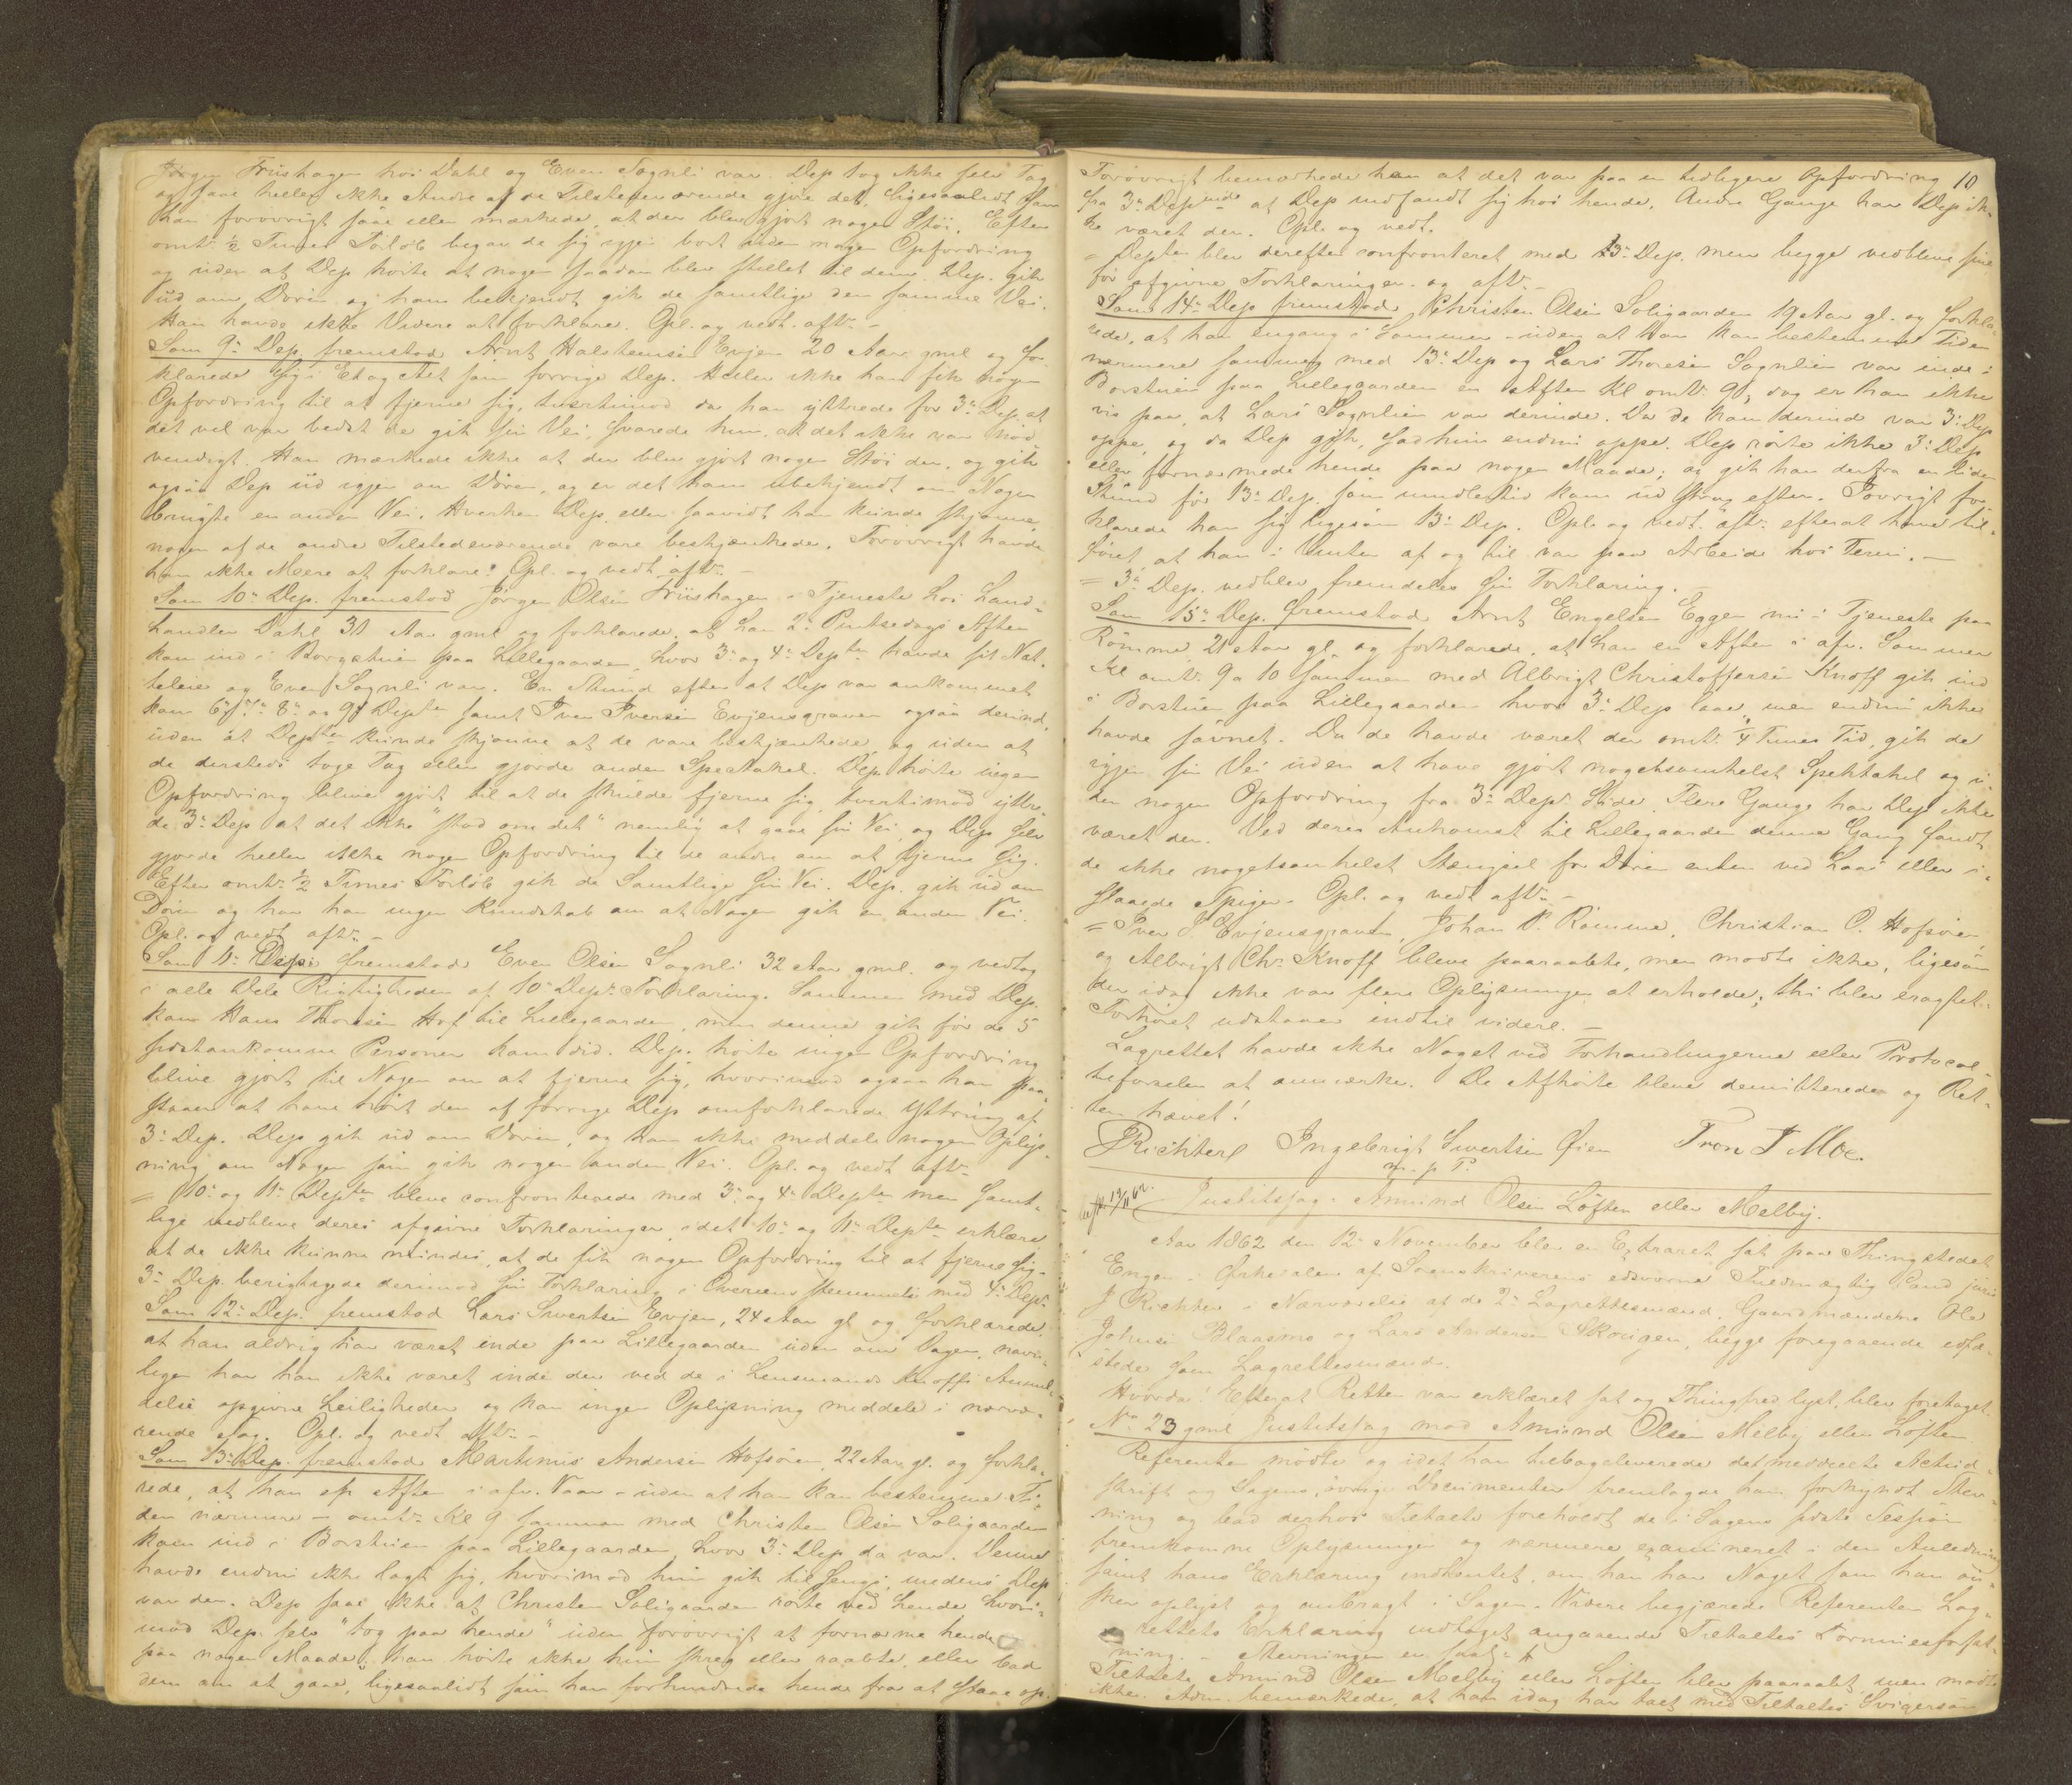 Jørgen Friishagen hos Dahl og Even Sognli var. Dep tog ikke selv Tag
og saae heller ikke Andre af de Tilstedeværende gjøre det, ligesaalidt som
han forøvrigt saae eller mærkede, at der blev gjort nogen Støi. Efter
omtr. ½ Times Forløb begav de sig igjen bort uden nogen Opfordring
og uden at Dep hørte at nogen saadan blev stillet til dem. Dep. gik
ud om Døren og ham bekjendt gik de samtlige den samme Vei.
Han havde ikke Videre at forklare. Opl. og vedt. aftr. -
Som 9de Dep. fremstod Arnt Halstensen Evjen 20 Aar gml og for-
klarede sig i Et og Alt som forrige Dep. Heller ikke han fik nogen
Opfordring til at fjerne sig, tvertimod da han yttrede for 3die Dep. at
det vel var bedst de gik sin Vei, svarede hun, at det ikke var nød-
vendigt. Han mærkede ikke at der blev gjort nogen Støi der, og gik
ogsaa Dep ud igjen om Døren, og er det ham ubekjendt om Nogen
brugte en anden Vei. Hverken Dep. eller saavidt han kunde skjønne,
nogen af de andre Tilstedeværende vare beskjænkede. Forøvrigt havde
han ikke Mere at forklare. Opl. og vedt. aftr. -
Som 10de Dep. fremstod Jørgen Olsen Friishagen i Tjeneste hos Land-
handler Dahl 31 Aar gml og forklarede, at han 2den Pintsedags Aften
kom ind i Borgstuen paa Lillegaarden, hvor 3die og 4de Depter havde sit Nat-
teleie og Even Sognli var. En Stund efter at Dep var ankommet
kom 6te, 7de, 8de og 9de Depter samt Iver Iversen Evjensgraven ogsaa derind,
uden at Depten kunde skjønne at de vare beskjænkede, og uden at
de dersteds toge Tag eller gjorde anden Spectakel. Dep hørte ingen
Opfordring blive gjort til at de skulde fjerne sig, tvertimod yttre-
de 3die Dep at det ikke "stod om det" nemlig at gaae sin Vei, og Dep selv
gjorde heller ikke nogen Opfordring til de andre om at fjerne sig.
Efter omtr. ½ Times Forløb gik de Samtlige sin Vei. Dep. gik ud om
Døren og har han ingen Kundskab om at Nogen gik en anden Vei.
Opl. og vedt. aftr. -
Som 11te Dep. fremstod Even Olsen Sognli 32 Aar gml. og vedtog
i alle Dele Rigtigheden af 10de Dep. Forklaring. Sammen med Dep.
kom Hans Thoresen Hof til Lillegaarden, men denne gik før de 5
sidstankomne Personer kom did. Dep. hørte ingen Opfordring
blive gjort til Nogen om at fjerne sig, hvorimod ogsaa han paa-
staaer at have hørt den af forrige Dep omforklarede Yttring af
3die Dep. Dep gik ud om Døren, og kan ikke meddele nogen Oplys-
ning om Nogen som gik nogen anden Vei. Opl. og vedt. aftr.
= 10de og 11te Depter bleve confronterede med 3die og 4de Depter men Samt-
lige vedbleve deres afgivne Forklaringer, idet 10de og 11te Depter erklære
at de ikke kunne mindes, at de fik nogen Opfordring til at fjerne sig.
3die Dep. berigtigede derimod sin Forklaring i Overensstemmelse med 4de Deps.
Som 12te Dep. fremstod Lars Sivertsen Evjen, 24 Aar gl og forklarede,
at han aldrig har været inde paa Lillegaarden uden om Dagen, navn-
ligen har han ikke været inde der ved de i Lensmand Knoffs Anmel-
delse opgivne Leiligheder og kan ingen Oplysning meddele i nærvæ-
rende Sag. Opl. og vedt. aftr. -
Som 13de Dep. fremstod Martinus Andersen Hofsøien, 22 Aar gl. og forkla-
rede, at han en Aften i afv. Vaar - uden at han kan bestemme Ti-
den nærmere - omtr. Kl 9 sammen med Christen Olsen Soligaarden
kom ind i Borstuen paa Lillegaarden, hvor 3die Dep. da var. Denne
havde endnu ikke lagt sig, hvorimod hun gik til Sengs, medens Dep
var der. Dep saae ikke at Christen Soligaarden rørte ved hende hvori-
mod Dep. selv "tog paa hende" uden forøvrigt at fornærme hende
paa nogen Maade; han hørte ikke hun skreg eller raabte, eller bad
dem om at gaae, ligesaalidt som han forhindrede hende fra at staae op.
10
Forøvrigt bemærkede han at det var paa en tidligere Opfordring
fra 3die Deps Side at Dep indfandt sig hos hende. Andre Gange har Dep ik-
ke været der. Opl. og vedt.
= Depten blev derefter confronteret med 3die Dep. men begge vedbleve sine
før afgivne Forklaringer og aftr. -
Som 14de Dep fremstod Christen Olsen Soligaarden 19 Aar gl. og forkla-
rede, at han engang i Sommer - uden at han kan bestemme Tiden
nærmere sammen med 13de Dep og Lars Thoresen Sognlien var inde i
Borstuen paa Lillegaarden en Aften Kl omtr. 9, dog er han ikke
vis paa, at Lars Sognlien var derinde. Da de kom derind var 3die Dep
oppe, og da Dep gik, sad hun endnu oppe. Dep rørte ikke 3die Dep
eller fornærmede hende paa nogen Maade; og gik han derfra en liden
Stund før 13de Dep. som imidlertid kom ud strax efter. Forøvrigt for-
klarede han sig ligesom 13de Dep. Opl. og vedt. aftr. efterat have til-
føiet, at han i Vinter af og til var paa Arbeide hos Ferm. -
= 3die Dep. vedblev fremdeles sin Forklaring.
Som 15de Dep. fremstod Arnt Engelsen Eggen nu i Tjeneste paa
Rømme 21 Aar gl. og forklarede, at han en Aften i afv. Sommer
Kl omtr. 9 a 10 sammen med Albrigt Christoffersen Knoff gik ind
i Borstuen paa Lillegaarden hvor 3die Dep laae, men endnu ikke
havde sovnet. Da de havde været der omtr. ¼ Times Tid, gik de
igjen sin Vei uden at have gjort nogetsomhelst Spektakel og u-
den nogen Opfordring fra 3die Deps Side. Flere Gange har Dep ikke
været der. Ved deres Ankomst til Lillegaarden denne Gang fandt
de ikke nogetsomhelst Stængsel for Døren enten ved Laas eller i-
slaaede Spiger. Opl. og vedt. aftr. -
= Iver I Evjensgraven, Johan P. Rømme, Christian O. Hofsøien
og Albrigt Chr. Knoff bleve paaraabte, men mødte ikke, ligesom
der idag ikke var flere Oplysninger at erholde; thi blev eragtet:
Forhøret udstaaer indtil videre. -
Lagrettet havde ikke Noget ved Forhandlingerne eller Protocol-
tilførselen at anmærke. De Afhørte bleve demitterede og Ret-
ten hævet!
JRichter Ingebrigt Sivertsen Øien Tron T Moe.
m. p. P.
Justitssag: Amund Olsen Løften eller Melby.
Aar 1862 den 12te November blev en Extraret sat paa Thingstedet
Engen i Ørkedalen af Sorenskriverens edsvorne Fuldmægtig Cand juris
J Richter i Nærværelse af de 2de Lagrettesmænd, Gaardmændene Ole
Johnsen Blaasmo og Lars Andersen Skoeigen, begge foregaaende edfæ-
stede som Lagrettesmænd.
Hvorda! Efterat Retten var erklæret sat og Thingfred lyst, blev foretaget
No 23 gml Justitssag mod Amund Olsen Melby eller Løften
Referenten mødte og idet han tilbageleverede det meddeelte Actud-
skrift og Sagens øvrige Documenter fremlagde han forkyndt Stev-
ning og bad derhos Tiltalte foreholdt de i Sagens sidste Session
fremkomne Oplysninger og nærmere examineret i den Anledning
samt hans Erklæring indhentet, om han har Noget som han øn-
sker oplyst og anbragt i Sagen. Videre begjærede Referenten Lag-
rettets Erklæring indtaget angaaende Tiltaltes Formuesforfat-
ning. - Stevningen er saal:
Tiltalte Amund Olsen Melby eller Løften blev paaraabt, men mødte
ikke. Adm. bemærkede, at han idag har talt med Tiltaltes Svigersøn